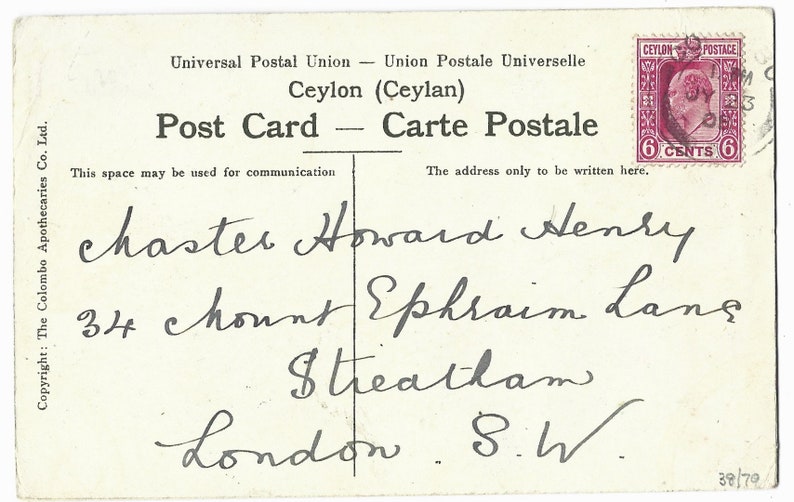 Universal Postal Union — Union Postale Universelle
Ceylon (Ceylan)
Post Card — Carte Postale
This space may be used for communication
The address only to be written here.
CEYLON POSTAGE
6 CENTS 6
Copyright: The Colombo Apothecaries Co. Ltd.
Master Howard Henry
34 Mount Ephraim Lane
Streatham
London. S.W.
38/70